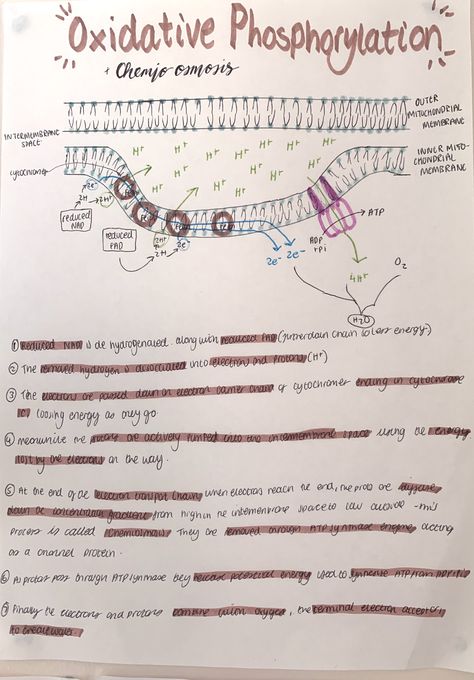 Oxidative Phosphorylation
+ Chemio osmosis
OUTER
MITOCHONDRIAL
MEMBRANE
INTERMEMBRANE
SPACE
H+ H+ H+ H+ H+
INNER MITO-
CHONDRIAL
MEMBRANE
H+ H+ H+ H+
cytochromes
H+ H+ H+
2e-
2H → 2H+
reduced
NAD
reduced
FAD
2H+
2H → 2e-
ATP
ADP
+Pi
2e- 2e-
4H+
O2
H2O
① Reduced NAD is de hydrogenated. along with reduced FAD (further down chain so less energy)
② The removed hydrogen is dissociated into electron and protons (H+)
③ The electrons are passed down an electron carrier chain of cytochromes ending in cytochrome
loosing energy as they go
④ Meanwhile the protons are actively pumped into the intermembrane space using the energy
lost by the electrons on the way.
⑤ At the end of the electron transport chain when electrons reach the end, the protons diffuse
down the concentration gradient from high in the intermembrane space to low outside - this
process is called chemiosmosis. They are removed through ATP synthase enzyme acting
as a channel protein.
⑥ As protons pass through ATP synthase they release potential energy used to synthesise ATP from ADP + Pi
⑦ Finally the electrons and protons combine with oxygen, the terminal electron acceptor,
to create water.